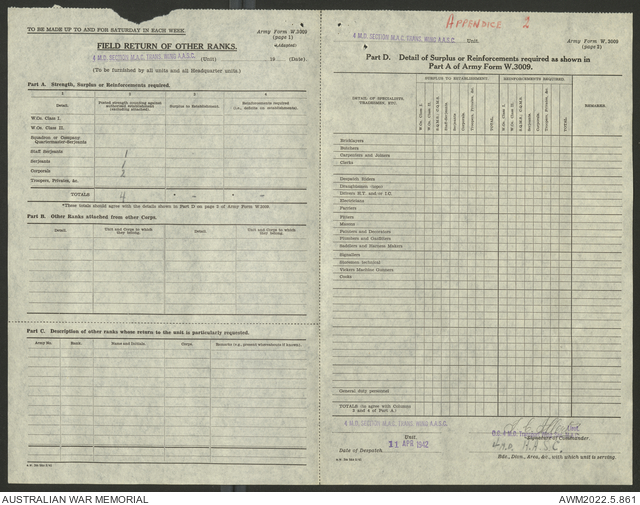 TO BE MADE UP TO AND FOR SATURDAY IN EACH WEEK.
Army Form W.3009
(page 1)
(Adapted)
FIELD RETURN OF OTHER RANKS.
4 M.D. SECTION M.A.C. TRANS. WING A.A.S.C. (Unit) 19 (Date).
(To be furnished by all units and all Headquarter units.)
Part A. Strength, Surplus or Reinforcements required.
1 2 3 4
Detail. Posted strength counting against authorized establishment (excluding attached). Surplus to Establishment. Reinforcements required (i.e., deficits on establishments).
W.Os. Class I.
W.Os. Class II.
Squadron or Company Quartermaster-Serjeants
Staff Serjeants 1
Serjeants 1
Corporals 2
Troopers, Privates, &c.
TOTALS 4
*These totals should agree with the details shown in Part D on page 2 of Army Form W.3009
Part B. Other Ranks attached from other Corps.
Detail. Unit and Corps to which they belong. Detail. Unit and Corps to which they belong.
Part C. Description of other ranks whose return to the unit is particularly requested.
Army No. Rank. Name and Initials. Corps. Remarks (e.g., present whereabouts if known).
APPENDICE 2
4 M.D. SECTION M.A.C. TRANS. WING A.A.S.C. Unit.
Army Form W.3009
(page 2)
Part D. Detail of Surplus or Reinforcements required as shown in
Part A of Army Form W.3009.
DETAIL OF SPECIALISTS, TRADESMEN, ETC. SURPLUS TO ESTABLISHMENT. REINFORCEMENTS REQUIRED. REMARKS.
W.Os. Class I. W.Os. Class II. Staff-Serjeants Serjeants Corporals Troopers, Privates, &c. TOTAL.
Bricklayers
Butchers
Carpenters and Joiners
Clerks
Despatch Riders
Draughtsmen (topo)
Drivers H.T. and/or I.C.
Electricians
Farriers
Fitters
Masons
Painters and Decorators
Plumbers and Gasfitters
Saddlers and Harness Makers
Signallers
Storemen technical
Vickers Machine Gunners
Cooks
General duty personnel
TOTALS (to agree with Columns 3 and 4 of Part A.)
4 M.D. SECTION M.A.C. TRANS. WING A.A.S.C.
Unit.
11 APR 1942
Date of Despatch
Signature of Commander.
4 M.D. A.A.S.C.
Bde., Divn., Area, &c., with which unit is serving.
AUSTRALIAN WAR MEMORIAL AWM2022.5.861